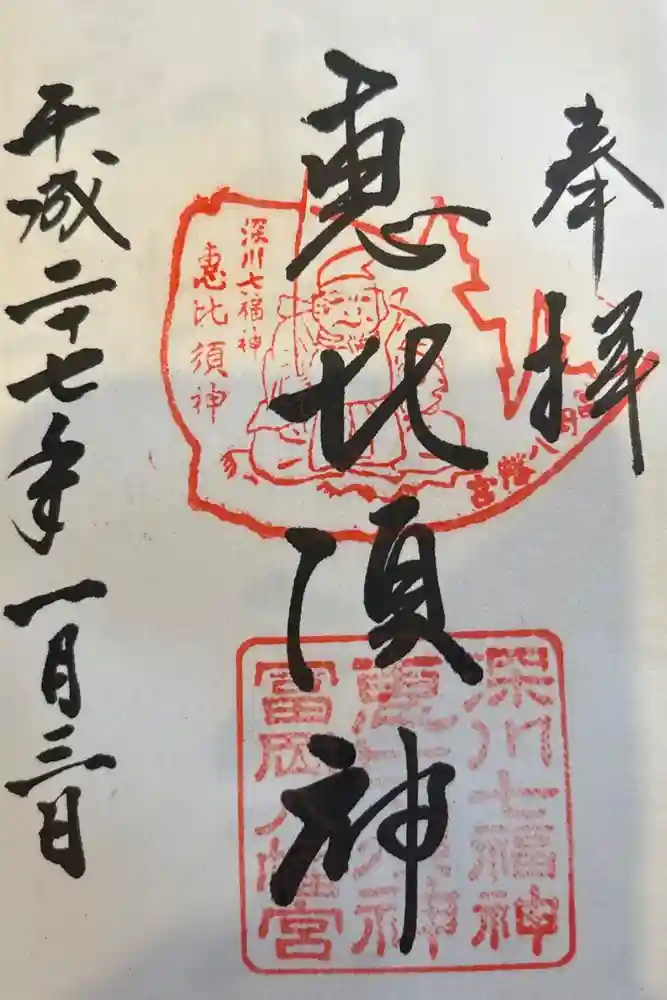 奉拝
恵比須神
平成二十七年一月三日
深川七福神
恵比須神
富岡八幡宮
深川七福神
恵比須神
富岡八幡宮